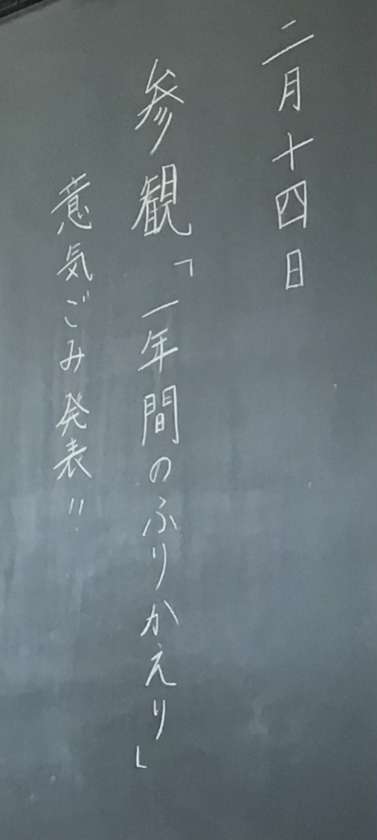 二月十四日
参観「一年間のふりかえり」
意気ごみ発表!!